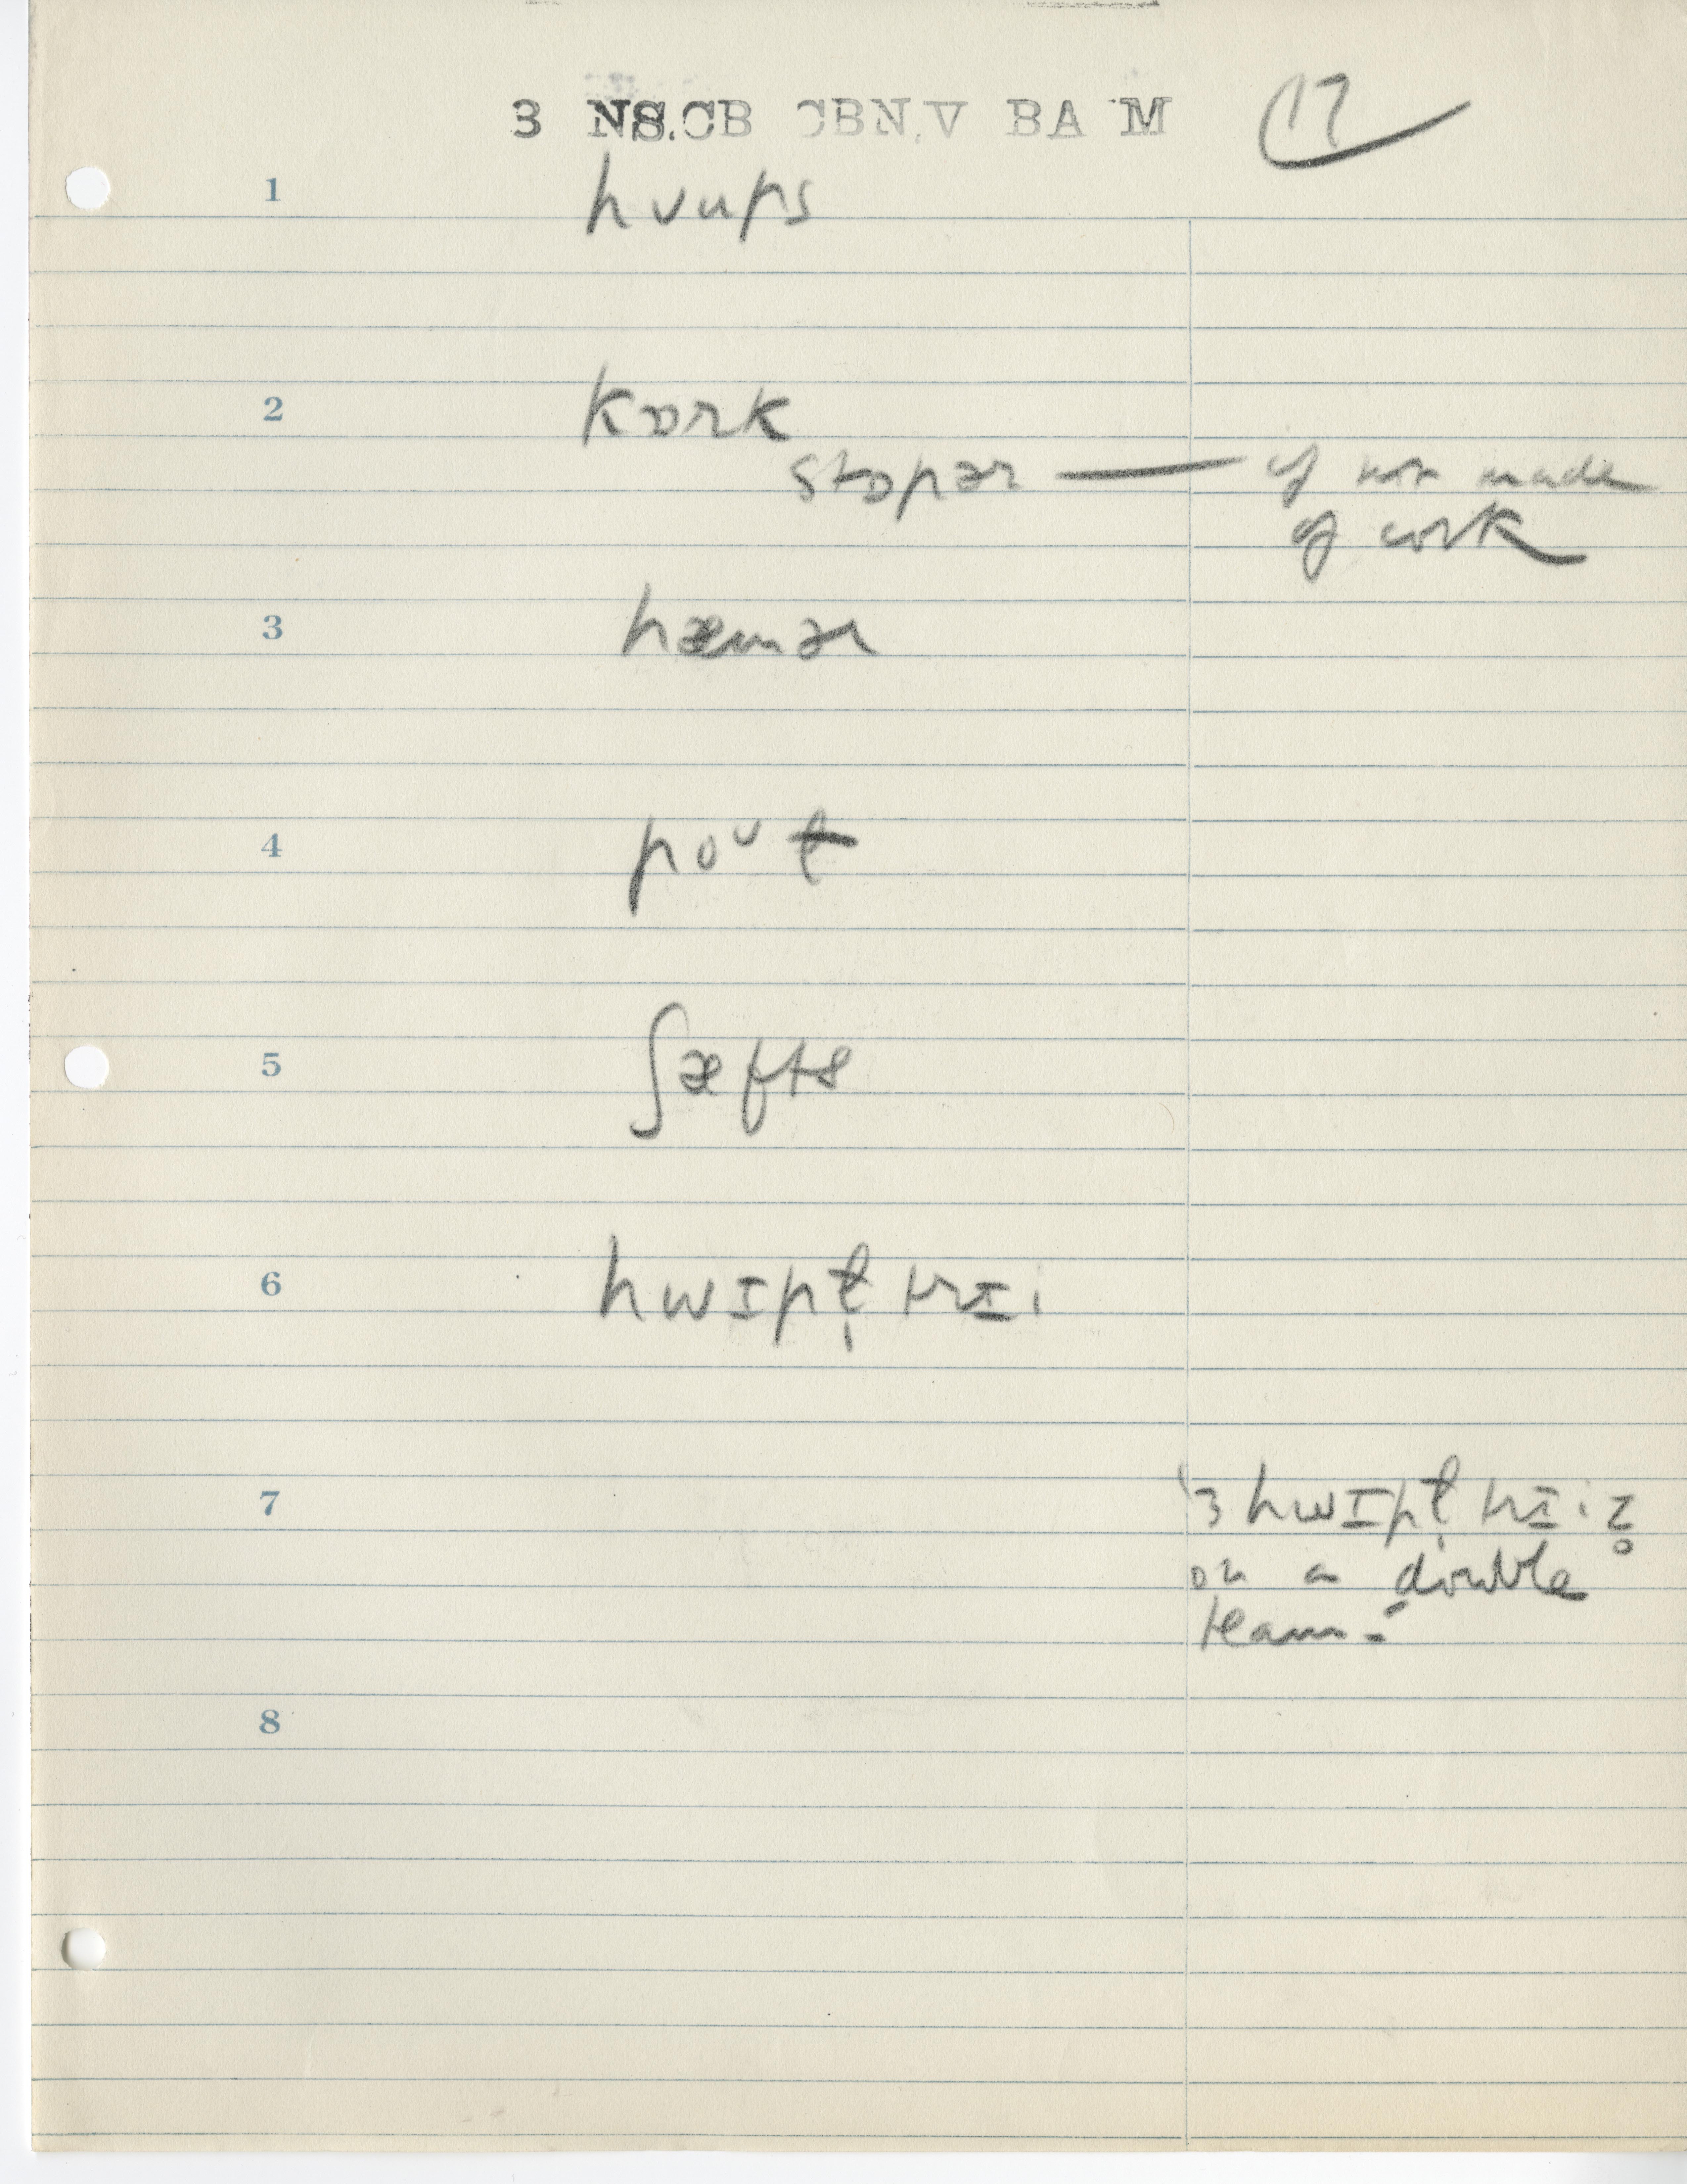 3 NS.CB CBN.V BA M 17
1 hʊups
2 kɒrk
stɒpər — if not made
of cork
3 hæmər
4 poᵘt
5 ʃæfts
6 hwɪpt̬ trɪi
7 '3 hwɪpt̬ trɪiz̥
on a double
team.'
8